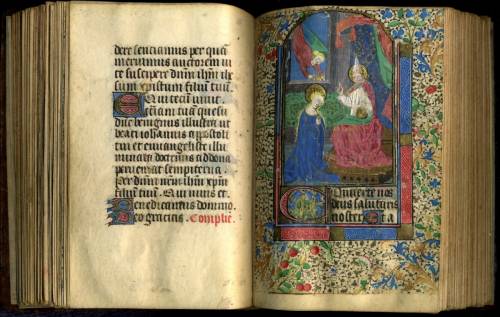 dere sentiamus per quem
meruimus auctorem vi
te suscipere dnm ihm
xpistum filium tuum.
Qui tecum vivit.
Ecclesiam tuam quesu
dne benignus illustra ut
beati iohannis appostoli
tui et evangeliste illu
minata doctrinis ad dona
perveniat sempiterna.
Per dnm nrm ihm xpm
filium tuum. Qui vivis et.
Benedicamus domino.
Deo gracias. Complie.
Converte nos
deus salutaris
noster. Et a